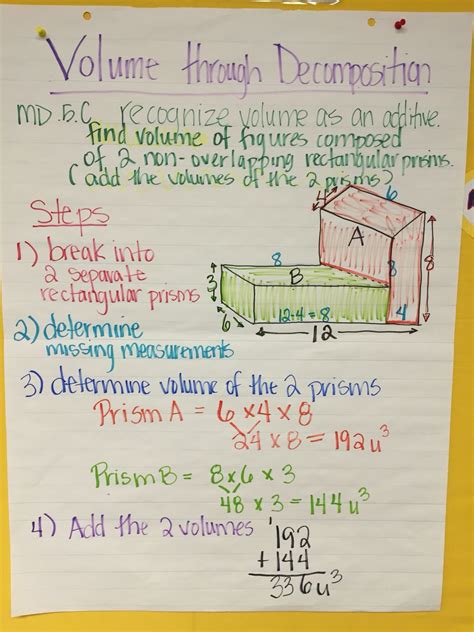 Volume through Decomposition
MD.5.C recognize volume as an additive.
find volume of figures composed
of 2 non-overlapping rectangular prisms.
(add the volumes of the 2 prisms)
Steps
1) break into
2 separate
rectangular prisms
4
6
A
8
8
B
3
8
6
12-4=8
4
12
2) determine
missing measurements
3) determine volume of the 2 prisms
Prism A = 6 x 4 x 8
24 x 8 = 192u³
Prism B = 8 x 6 x 3
48 x 3 = 144u³
4) Add the 2 volumes
1
192
+ 144
336u³